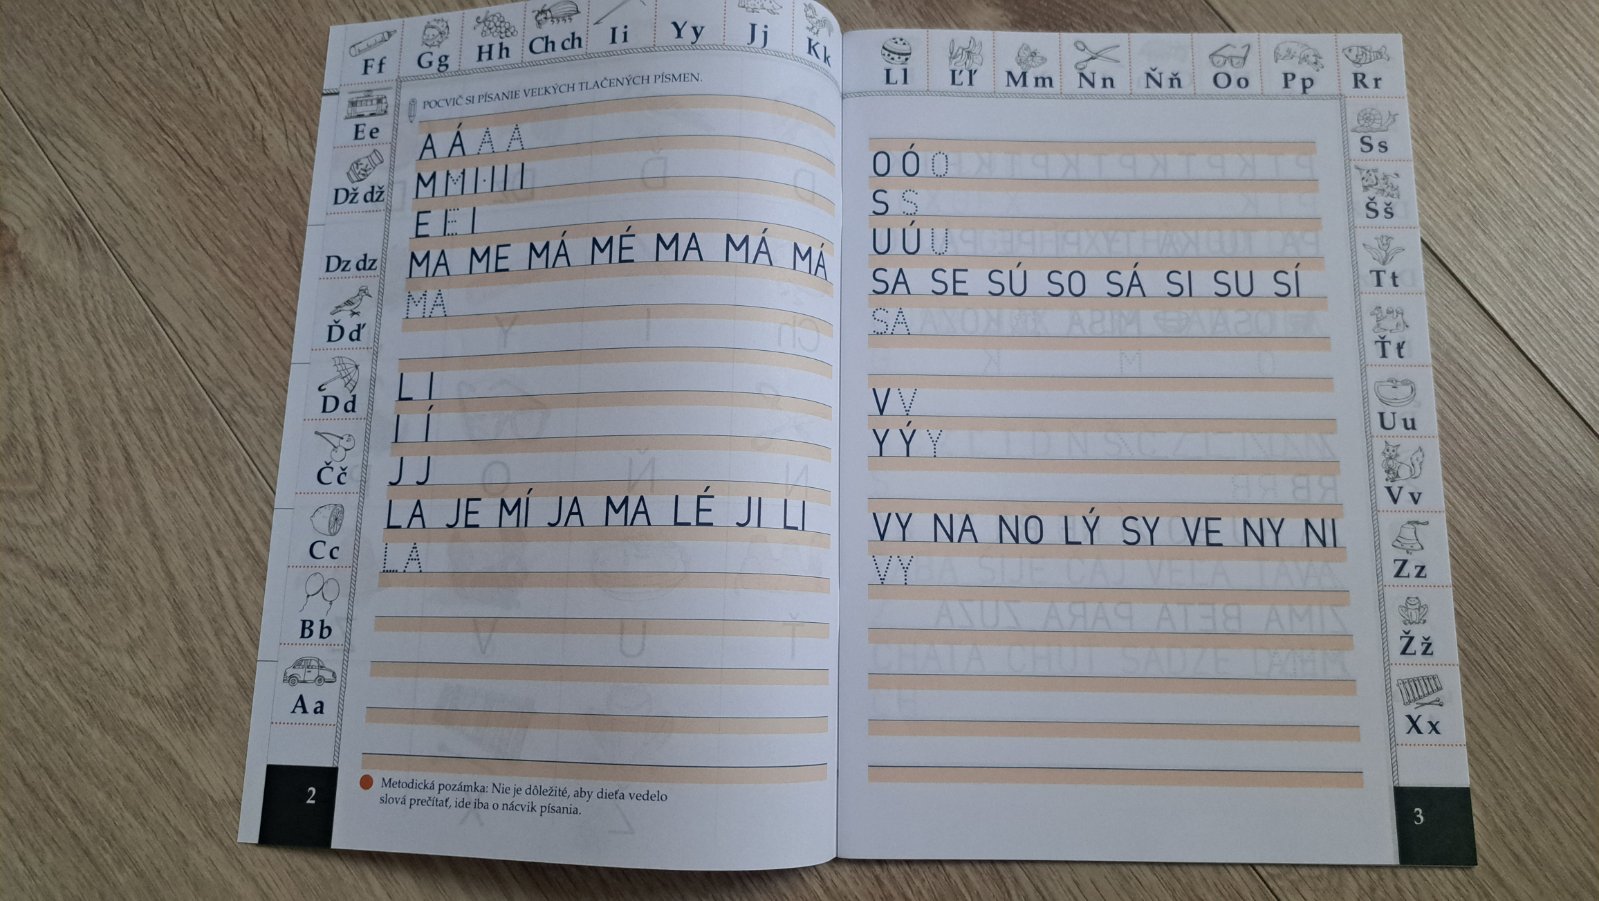 Ff Gg Hh Ch ch Ii Yy Jj Kk
Ee
Dž dž
Dz dz
Ďď
Dd
Čč
Cc
Bb
Aa
POCVIČ SI PÍSANIE VEĽKÝCH TLAČENÝCH PÍSMEN.
A Á A A
M M I · I I I
E E I
MA ME MÁ MÉ MA MÁ MÁ
MA
L I
I Í
J J
LA JE MÍ JA MA LÉ JI LI
LA
Metodická pozámka: Nie je dôležité, aby dieťa vedelo
slová prečítať, ide iba o nácvik písania.
2
Ll Ľľ Mm Nn Ňň Oo Pp Rr
O Ó O
S S
U Ú U
SA SE SÚ SO SÁ SI SU SÍ
SA
V V
Y Ý Y
VY NA NO LÝ SY VE NY NI
VY
Ss
Šš
Tt
Ťť
Uu
Vv
Zz
Žž
Xx
3